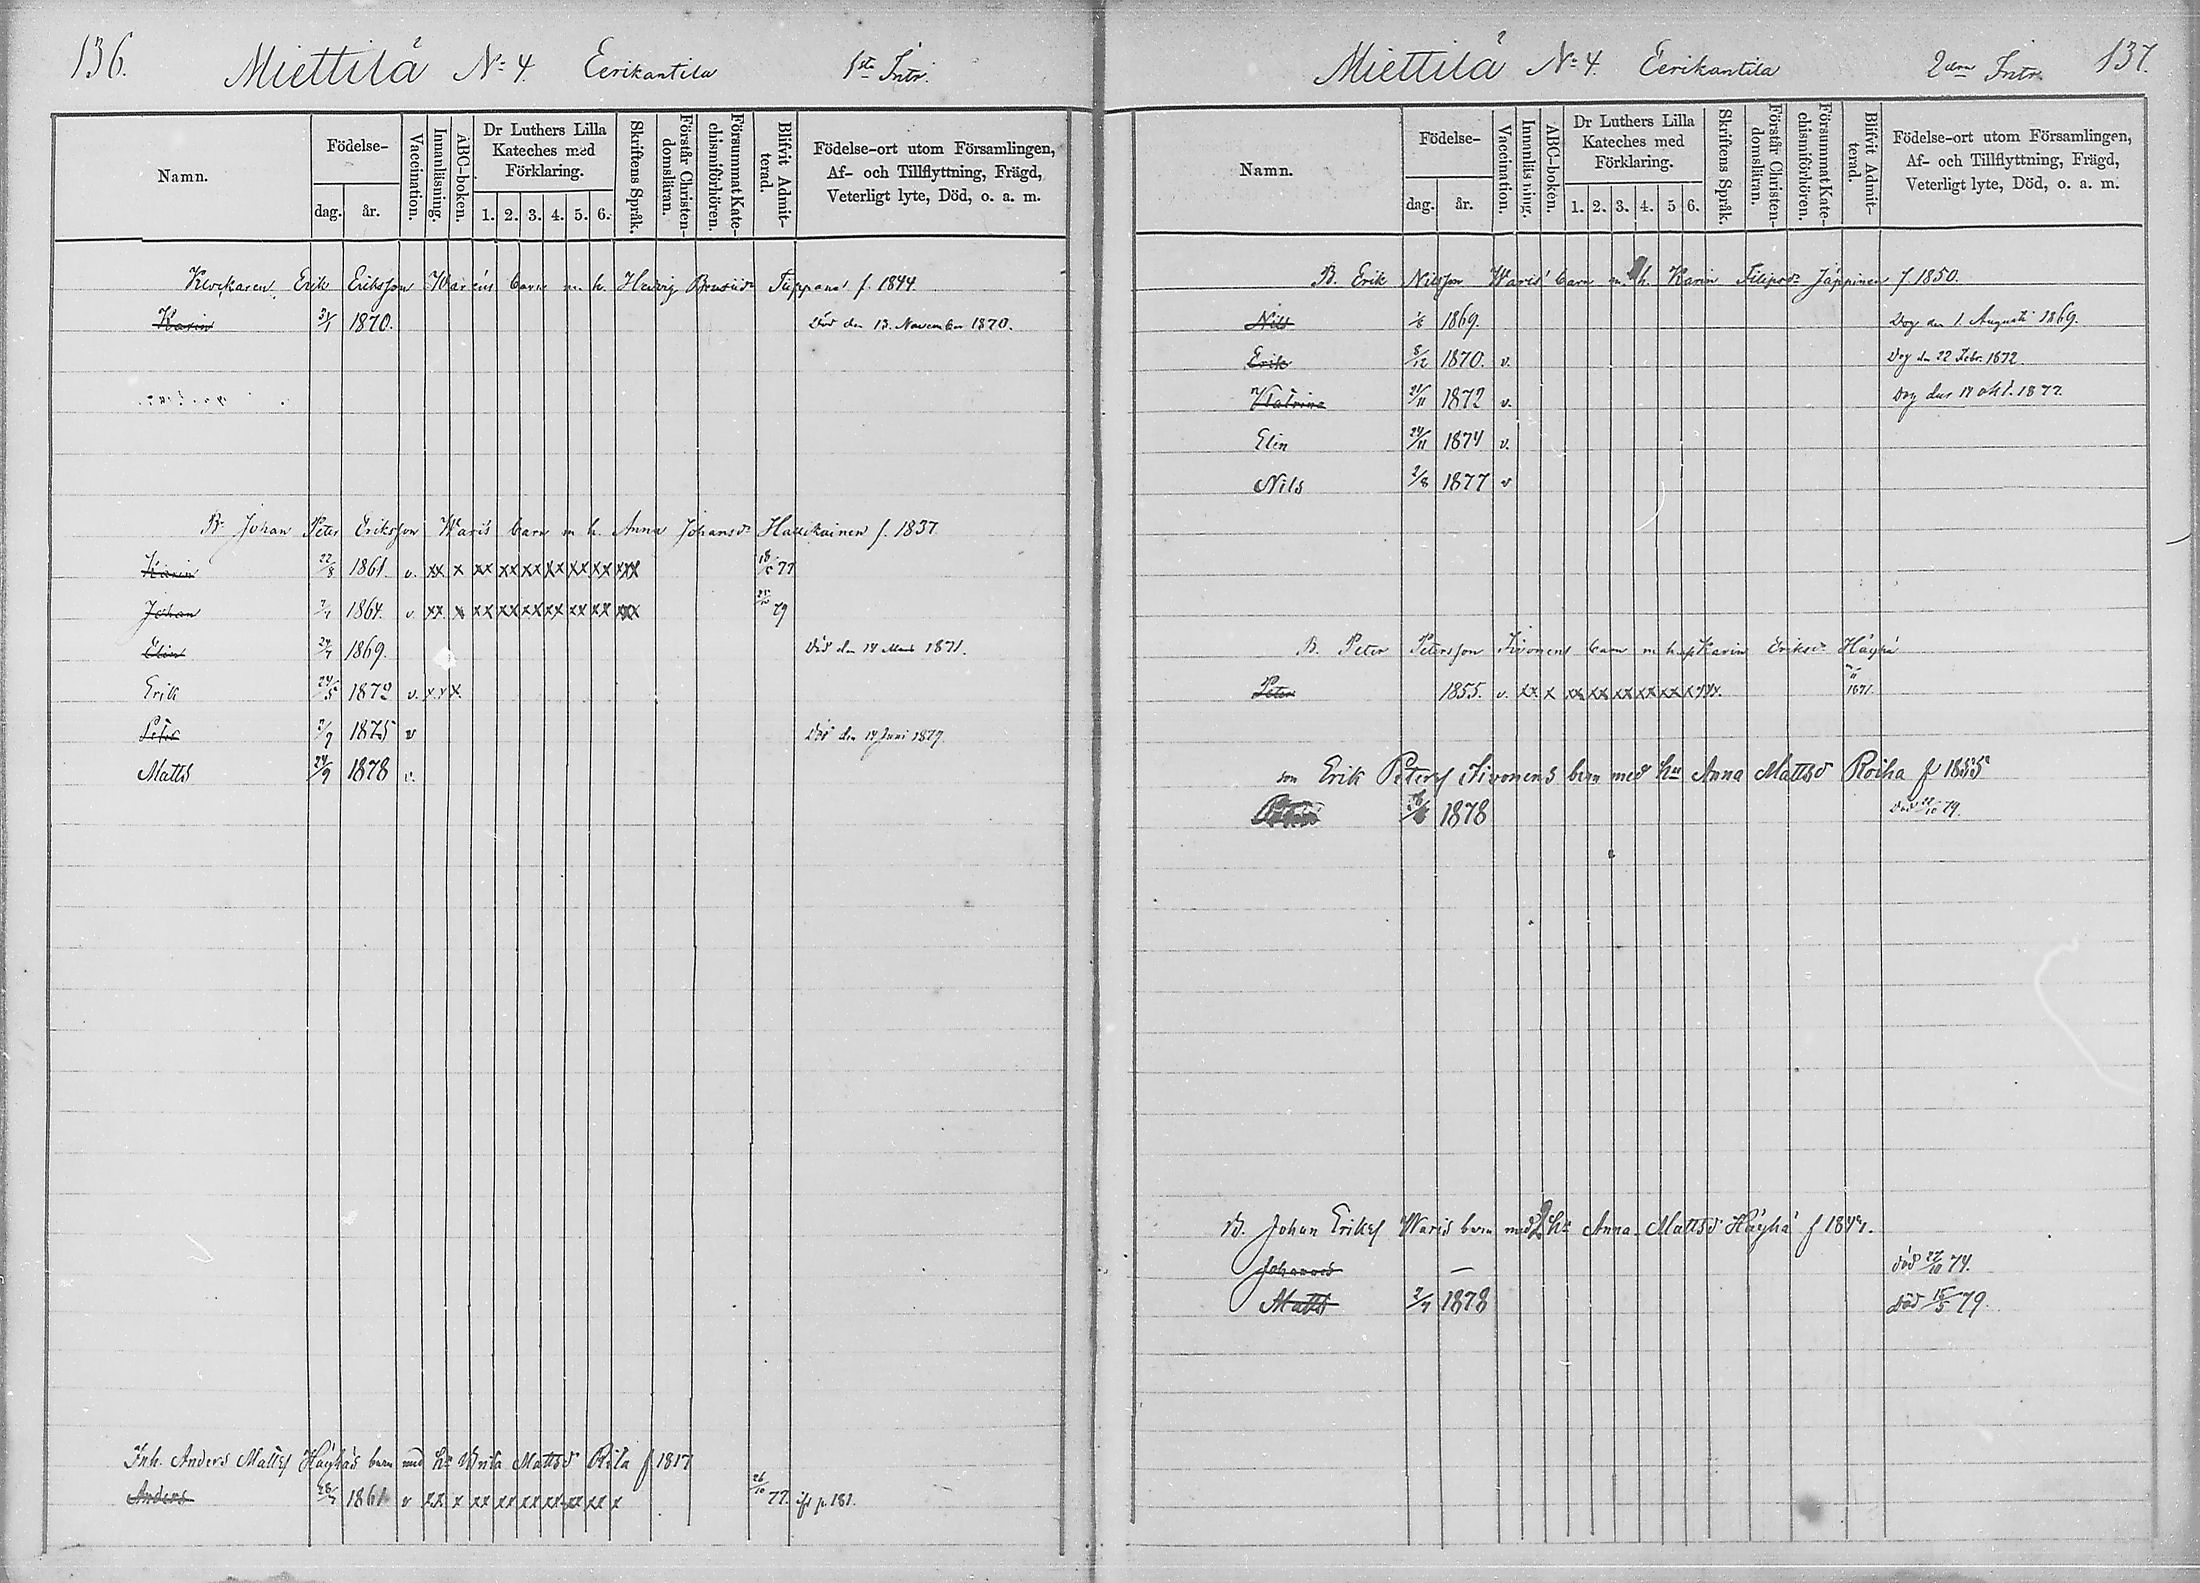 136.
Miettilä N:o 4 Eerikantila 1sta Intr.
Namn.
Födelse-
dag.
år.
Vaccination.
Innanläsning.
ABC-boken.
Dr Luthers Lilla
Kateches med
Förklaring.
1. 2. 3. 4. 5. 6.
Skriftens Språk.
Förstår Christen-
domsläran.
Försummat Kate-
chismiförhören.
Blifvit Admit-
terad.
Födelse-ort utom Församlingen,
Af- och Tillflyttning, Frägd,
Veterligt lyte, Död, o. a. m.
Erik Eriksson barn m. h. Hedvig f. 1844.
Karin 1870. Död den 13. November 1870.
B. Johan Peter Eriksson Waris barn m h. Anna Johansd. f. 1837
Karin 22/8 1861. v. xx x xx xx xx xx xx xx xxx 77
Johan 1864. v. xx x xx xx xx xx xx xx xxx 79
Elin 1869. Död den 14 1871.
Erik 24/5 1872 v. x x x.
Peter 1875 v Död den 14 Juni 1879.
Matts 24/9 1878 v.
Inh. Anders Mattsf Häyhäs barn med h. Mattsd f 1817
Anders 1861 v xx x xx xx xx xx xx xx x 26/10 77. p 181.
Miettilä N:o 4. Eerikantila 2dra Intr. 137.
Namn.
Födelse-
dag.
år.
Vaccination.
Innanläsning.
ABC-boken.
Dr Luthers Lilla
Kateches med
Förklaring.
1. 2. 3. 4. 5 6.
Skriftens Språk.
Förstår Christen-
domsläran.
Försummat Kate-
chismiförhören.
Blifvit Admit-
terad.
Födelse-ort utom Församlingen,
Af- och Tillflyttning, Frägd,
Veterligt lyte, Död, o. a. m.
B. Erik Nilsson Waris' barn m. h. Karin Filipsd. Jäppinen f 1850.
Nils 1869. Dog den 1. Augusti 1869.
Erik 8/12 1870. v. Dog den 22 Febr. 1872
Katrina 21/11 1872 v. Dog den 17 okt. 1877.
Elin 24/11 1874 v.
Nils 2/8 1877 v
B. Peter Petersson Sivonens barn m h Karin Eriksd. Häyhä
Peter 1855. v. xx x xx xx xx xx xx x xxx. 1871.
son Erik Petersf Sivonens barn med h:u Anna Mattsd Roiha f 1855
1878 död 79.
B. Johan Eriksf Waris barn med 2 h:u Anna Mattsd Häyhä f
Johannes — död 27/10 74.
Matts 2/7 1878 död 15/5 79.